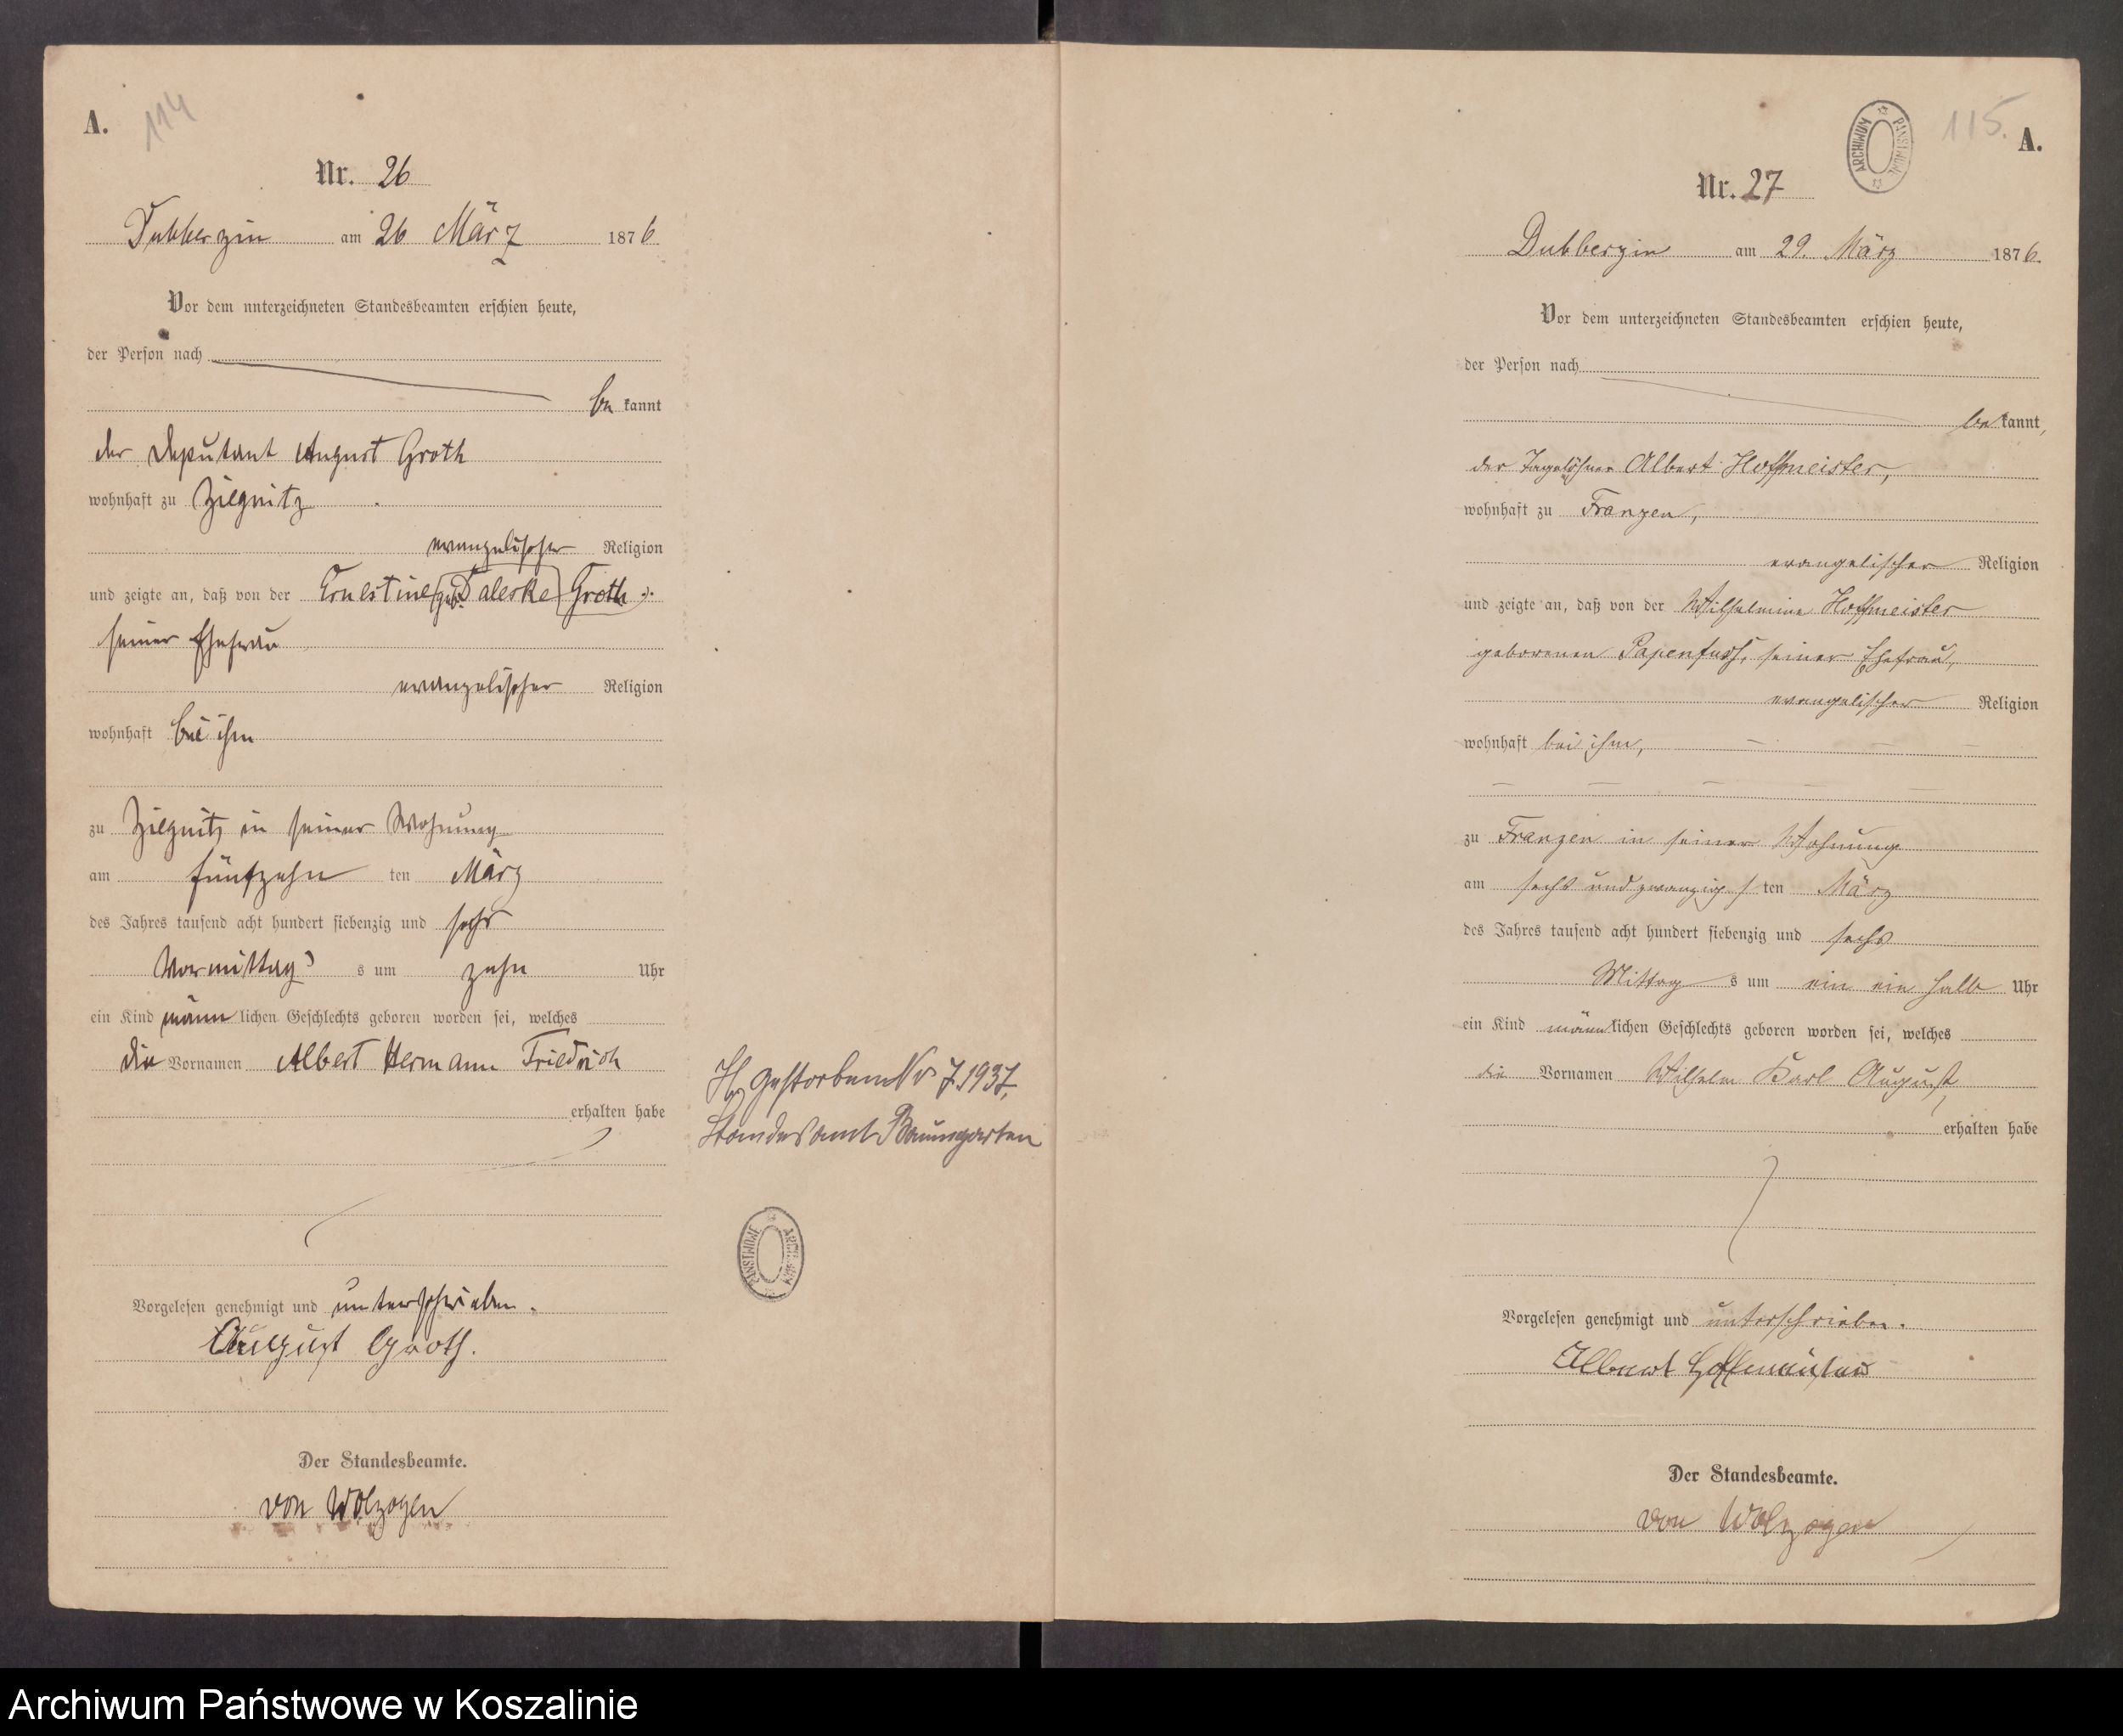 A.
114
Nr. 26
Dubberzin am 26 März 1876
Vor dem unterzeichneten Standesbeamten erschien heute,
der Person nach
be kannt
der Deputant August Groth
wohnhaft zu Ziegnitz
evangelischer Religion
und zeigte an, daß von der Ernestine (geb. Daleske) Groth
seiner Ehefrau
evangelischer Religion
wohnhaft bei ihm
zu Ziegnitz in seiner Wohnung
am fünfzehn ten März
des Jahres tausend acht hundert siebenzig und sechs
Vormittag s um zehn Uhr
ein Kind männ lichen Geschlechts geboren worden sei, welches
die Vornamen Albert Hermann Friedrich
erhalten habe
Vorgelesen genehmigt und unterschrieben.
August Groth.
Der Standesbeamte.
von Wolzogen
gestorben Nr 7.1937,
Standesamt Baumgarten
ARCHIWUM PAŃSTWOWE
115.
A.
ARCHIWUM PAŃSTWOWE
Nr. 27
Dubberzin am 29. März 1876.
Vor dem unterzeichneten Standesbeamten erschien heute,
der Person nach
be kannt,
der Tagelöhner Albert Hoffmeister,
wohnhaft zu Franzen,
evangelischer Religion
und zeigte an, daß von der Wilhelmine Hoffmeister
geborenen Papenfuss, seiner Ehefrau,
evangelischer Religion
wohnhaft bei ihm,
zu Franzen in seiner Wohnung
am sechs und zwanzigs ten März
des Jahres tausend acht hundert siebenzig und sechs
Mittag s um ein ein halb Uhr
ein Kind männ lichen Geschlechts geboren worden sei, welches
die Vornamen Wilhelm Karl August,
erhalten habe
Vorgelesen genehmigt und unterschrieben.
Albert Hoffmeister
Der Standesbeamte.
von Wolzogen
Archiwum Państwowe w Koszalinie